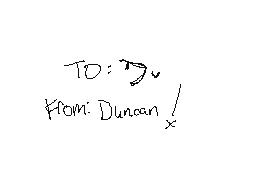 TO:
From: Duncan x